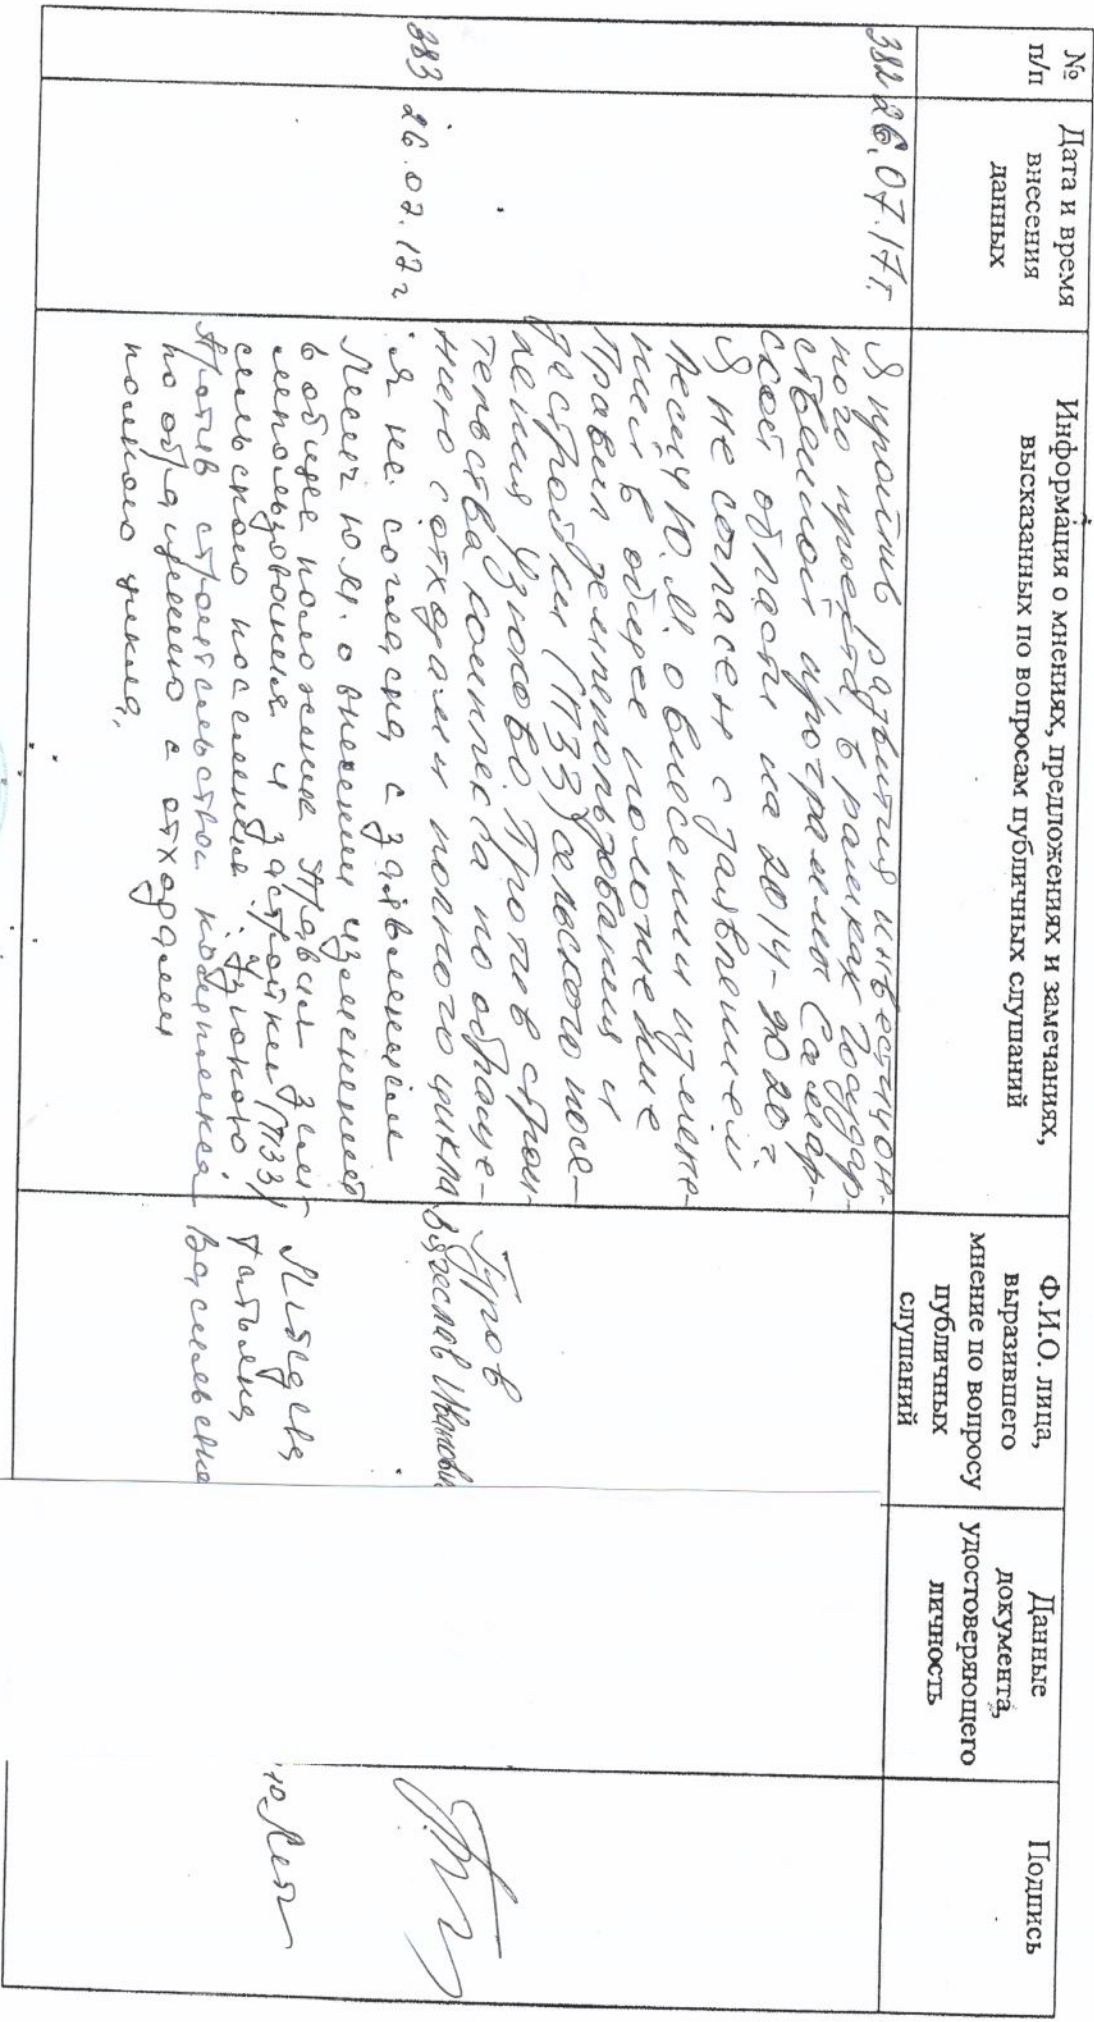 №
п/п
Дата и время
внесения
данных
Информация о мнениях, предложениях и замечаниях,
высказанных по вопросам публичных слушаний
Ф.И.О. лица,
выразившего
мнение по вопросу
публичных
слушаний
Данные
документа,
удостоверяющего
личность
Подпись
382 26.07.17г.
Я против развития инвестицион-
ного проекта, в рамках Государ-
ственной программы Самар-
ской области на 2014-2020г.
Я не согласен с заявлением
Лесич Ю.М. о внесении измене-
ний в общее положение
Правил землепользования и
застройки (ПЗЗ) сельского посе-
ления Узюково. Против строи-
тельства комплекса по обраще-
нию с отходами полного цикла
Вячеслав Иванович
383
26.07.17г
я не согласна с заявлением
Лесич Ю.М. о внесении изменений
в общее положение Правил зем-
лепользования и застройки (ПЗЗ)
сельского поселения Узюково.
Против строительства комплекса
по обращению с отходами
полного цикла.
Татьяна
Васильевна